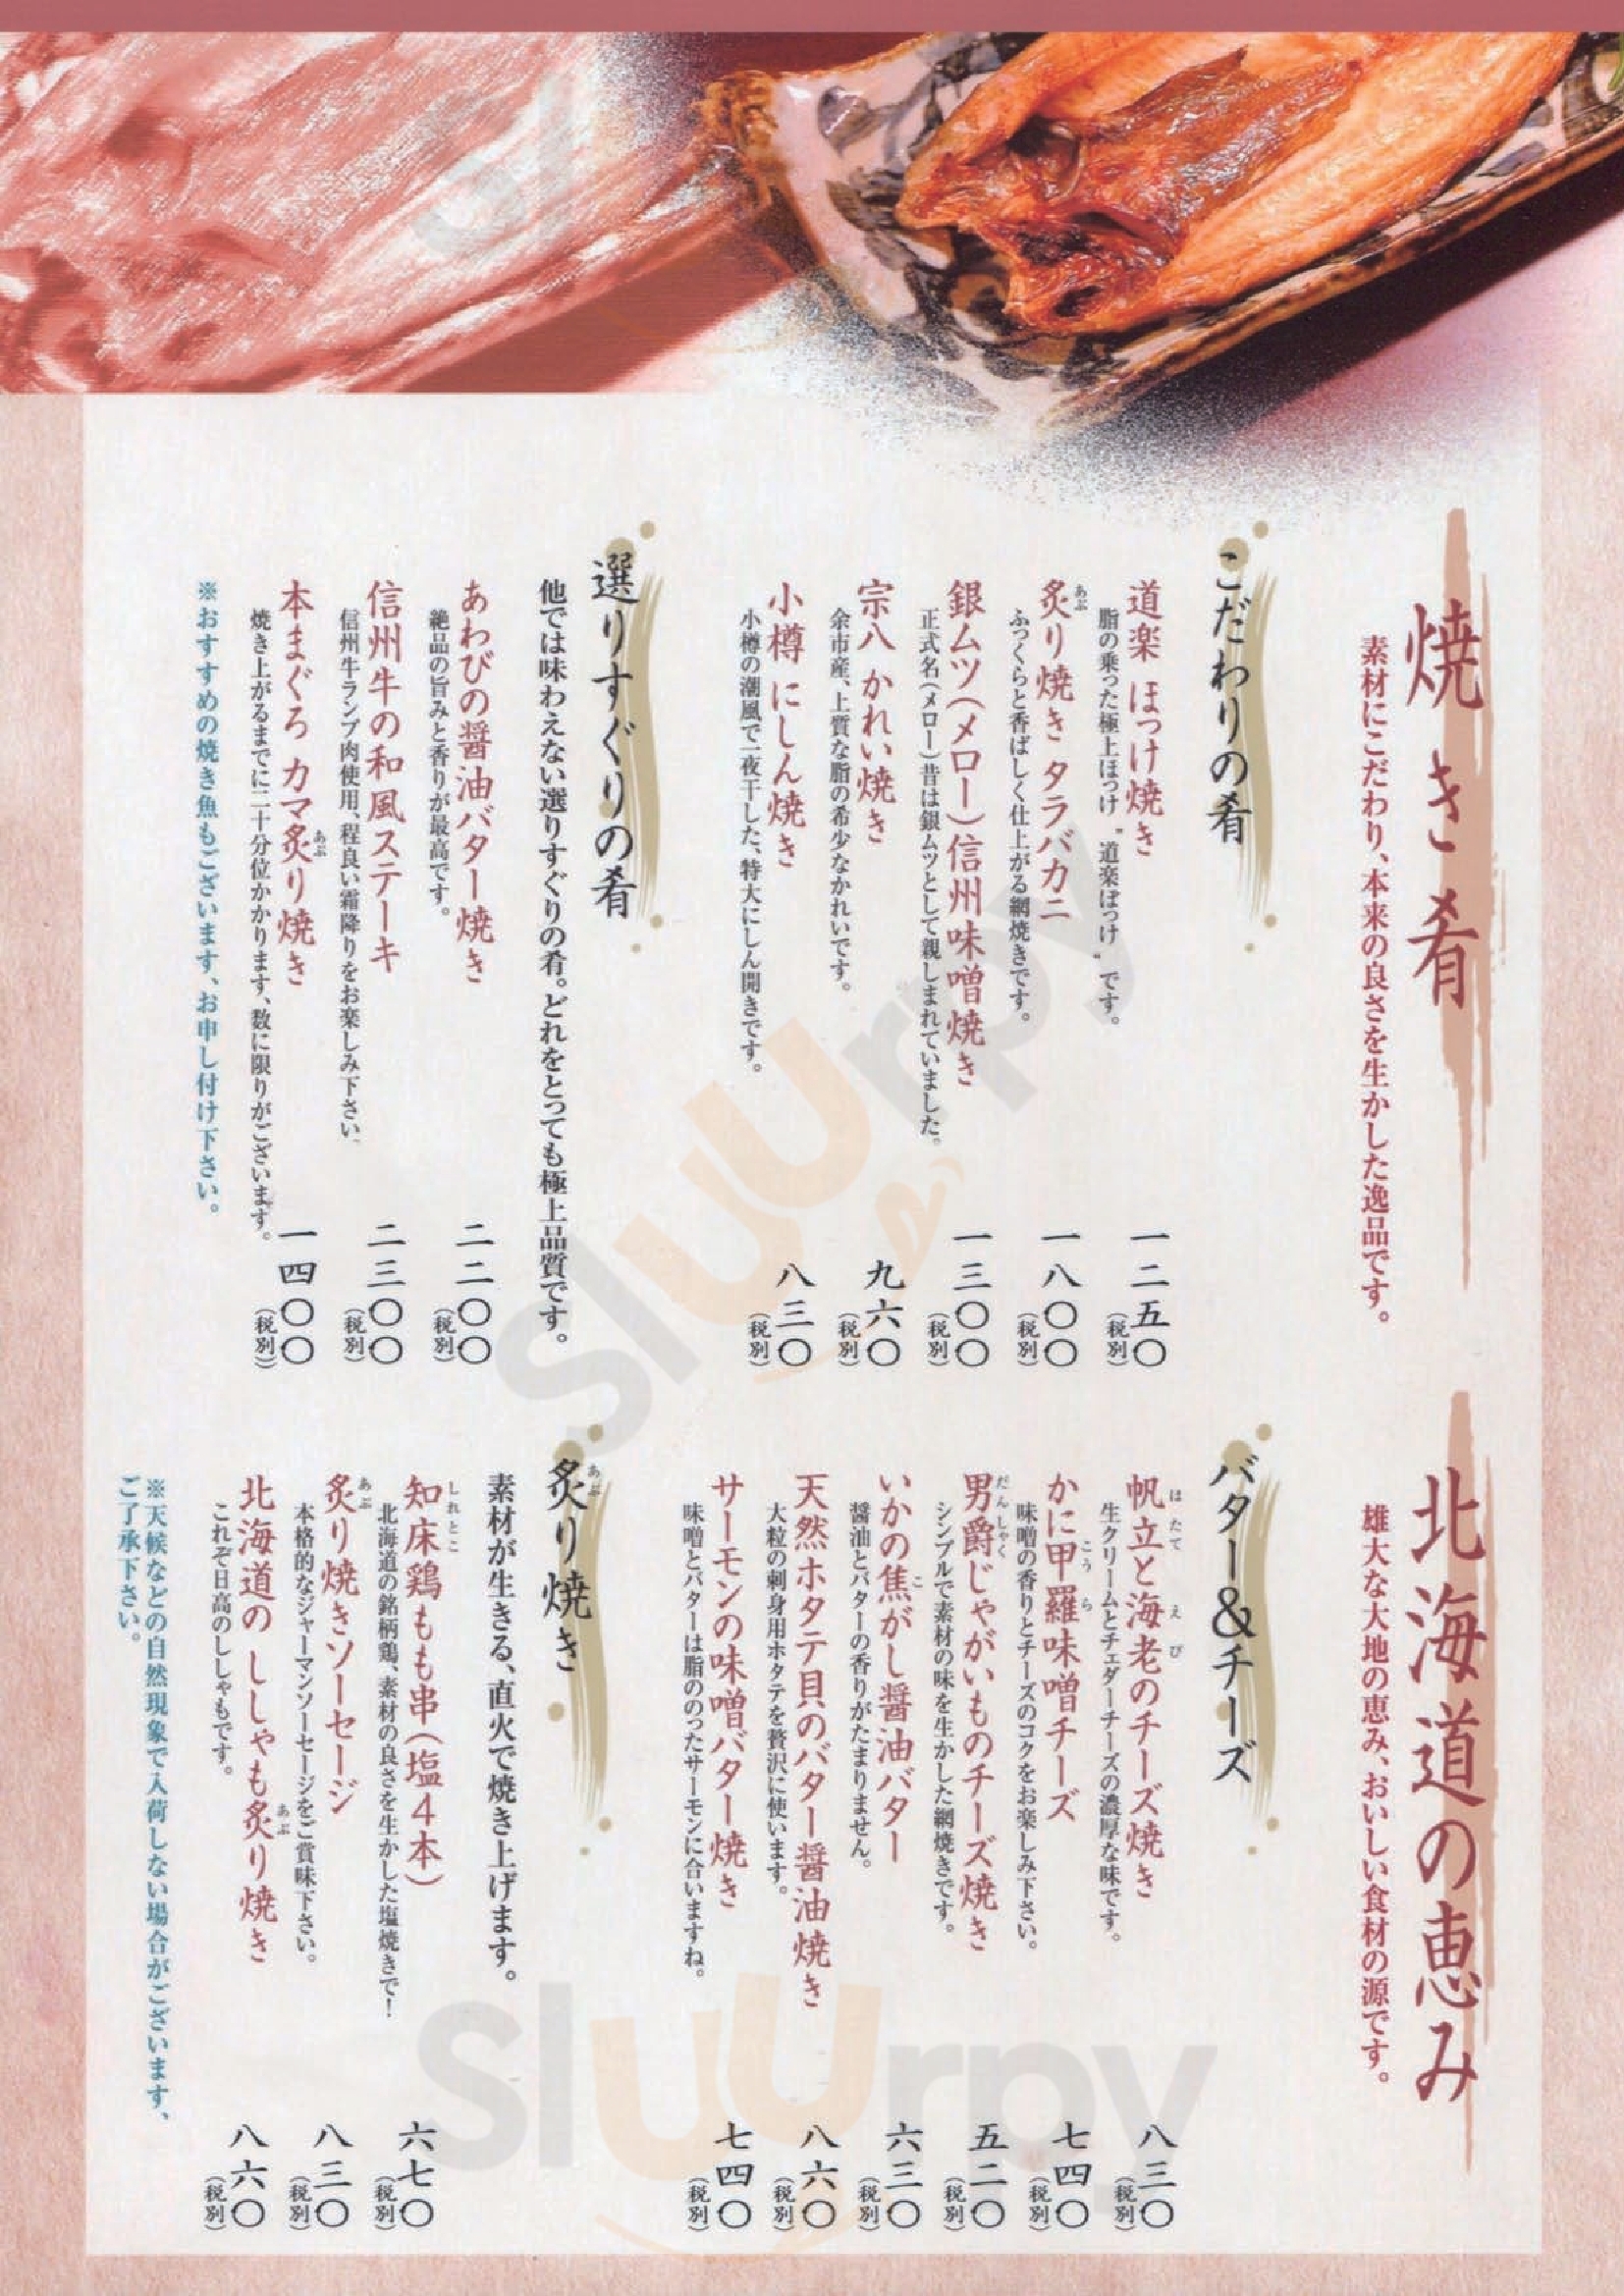 焼き肴
素材にこだわり、本来の良さを生かした逸品です。
こだわりの肴
道楽 ほっけ焼き
一二五〇
脂の乗った極上ほっけ〝道楽ほっけ〟です。
(税別)
あぶ
炙り焼き タラバカニ
一八〇〇
ふっくらと香ばしく仕上がる網焼きです。
(税別)
銀ムツ(メロー)信州味噌焼き
一三〇〇
正式名(メロー)昔は銀ムツとして親しまれていました。
(税別)
宗八 かれい焼き
九六〇
余市産、上質な脂の希少なかれいです。
(税別)
小樽 にしん焼き
八三〇
小樽の潮風で一夜干した、特大にしん開きです。
(税別)
選りすぐりの肴
他では味わえない選りすぐりの肴。どれをとっても極上品質です。
あわびの醤油バター焼き
二二〇〇
絶品の旨みと香りが最高です。
(税別)
信州牛の和風ステーキ
二三〇〇
信州牛ランプ肉使用、程良い霜降りをお楽しみ下さい。
(税別)
あぶ
本まぐろ カマ炙り焼き
一四〇〇
焼き上がるまでに二十分位かかります、数に限りがございます。
(税別)
※おすすめの焼き魚もございます、お申し付け下さい。
北海道の恵み
雄大な大地の恵み、おいしい食材の源です。
バター&チーズ
はたて えび
帆立と海老のチーズ焼き
八三〇
生クリームとチェダーチーズの濃厚な味です。
(税別)
こうら
かに甲羅味噌チーズ
七四〇
味噌の香りとチーズのコクをお楽しみ下さい。
(税別)
だんしゃく
男爵じゃがいものチーズ焼き
五二〇
シンプルで素材の味を生かした網焼きです。
(税別)
こ
いかの焦がし醤油バター
六三〇
醤油とバターの香りがたまりません。
(税別)
天然ホタテ貝のバター醤油焼き
八六〇
大粒の刺身用ホタテを贅沢に使います。
(税別)
サーモンの味噌バター焼き
七四〇
味噌とバターは脂ののったサーモンに合いますね。
(税別)
あぶ
炙り焼き
素材が生きる、直火で焼き上げます。
しれとこ
知床鶏もも串(塩4本)
六七〇
北海道の銘柄鶏、素材の良さを生かした塩焼きで!
(税別)
あぶ
炙り焼きソーセージ
八三〇
本格的なジャーマンソーセージをご賞味下さい。
(税別)
あぶ
北海道の ししゃも炙り焼き
八六〇
これぞ日高のししゃもです。
(税別)
※天候などの自然現象で入荷しない場合がございます、
ご了承下さい。
Sluurpy
Sluurpy